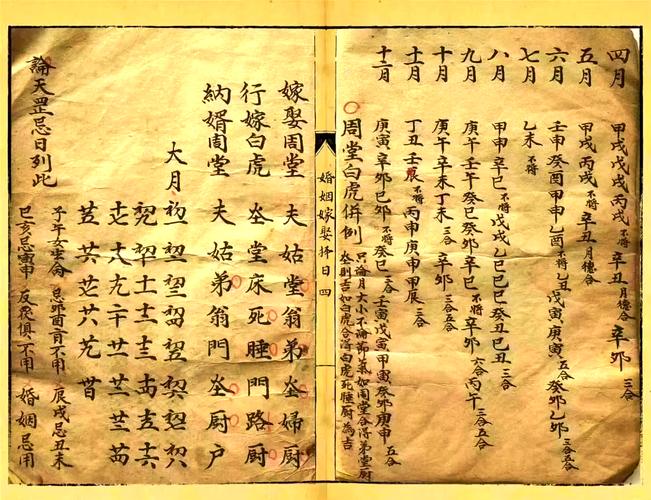 四月 甲戌 戊戌 丙戌 不将 辛丑 月德合 辛卯 三合
五月 甲戌 丙戌 不将 辛丑 月德合
六月 壬申 癸酉 甲申 乙酉 不将 乙丑 戊寅 庚寅 五合 癸卯 乙卯 三合五合
七月 乙未 不将
八月 甲申 辛巳 不将 戊戌 乙巳 己巳 癸丑 巳丑 三合
九月 庚午 壬午 癸巳 癸卯 辛巳 不将 辛卯 六合 丙午 三合五合
十月 庚午 辛未 丁未 三合 辛卯 三合五合
十一月 丁丑 壬辰 不将 丙申 庚申 甲辰 三合
十二月 庚寅 辛卯 己卯 不将 癸巳 三合 壬寅 戊寅 甲寅 癸卯 庚申 五合
○周堂白虎併例 只論月大小不論節氣如周堂合得弟堂厨
灶則吉如白虎合得白虎死睡厨為吉
婚姻嫁娶择日 四
嫁娶周堂 夫姑堂翁弟灶婦厨
行嫁白虎 灶堂床死睡門路厨
納婿周堂 夫姑弟翁門灶厨户
大月 初一 初二 初三 初四 初五 初六 初七 初八
初九 初十 十一 十二 十三 十四 十五 十六
十七 十八 十九 二十 廿一 廿二 廿三 廿四
廿五 廿六 廿七 廿八 廿九 卅日
論天罡忌日列此
子午女生命 忌卯酉肖不用 辰戌忌丑未
巳亥忌寅申 反畏俱不用 婚姻忌用